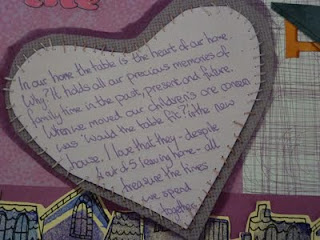 In our home the table is the heart of our home.
Why? It holds all our precious memories of
family time in the past, present and future.
When we moved our children's one concern
was 'Would the table fit?' in the new
house. I love that they - despite
4 out of 5 leaving home - all
treasure the times
we spend
together.